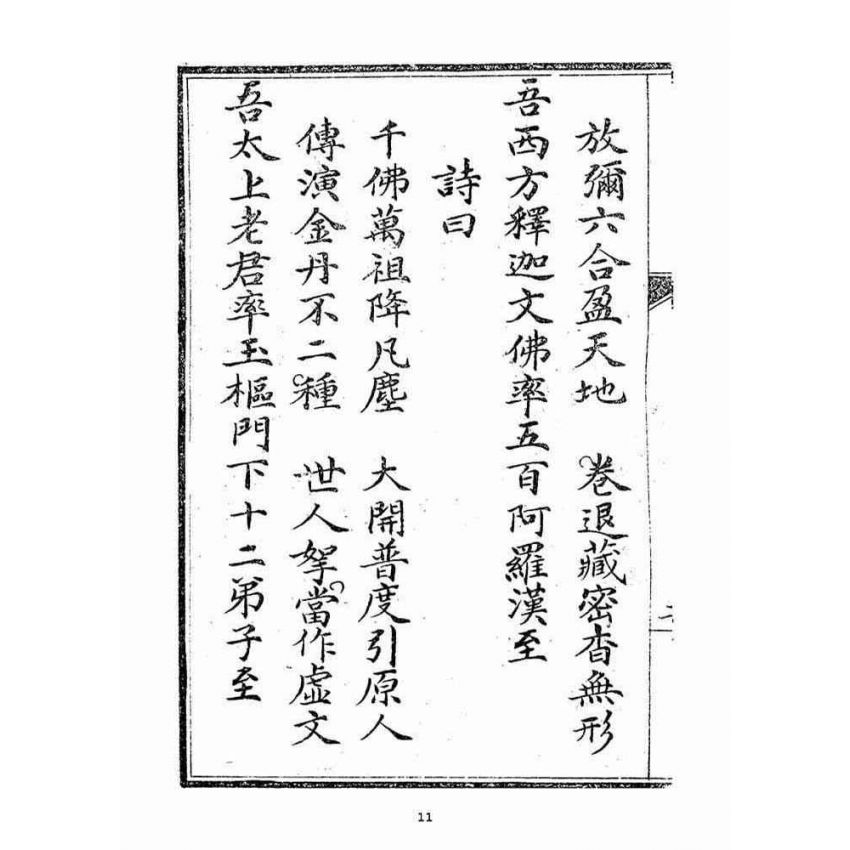 放彌六合盈天地　卷退藏密杳無形
吾西方釋迦文佛率五百阿羅漢至
詩曰
千佛萬祖降凡塵　大開普度引原人
傳演金丹不二種　世人拏當作虛文
吾太上老君率玉樞門下十二弟子至
二
11